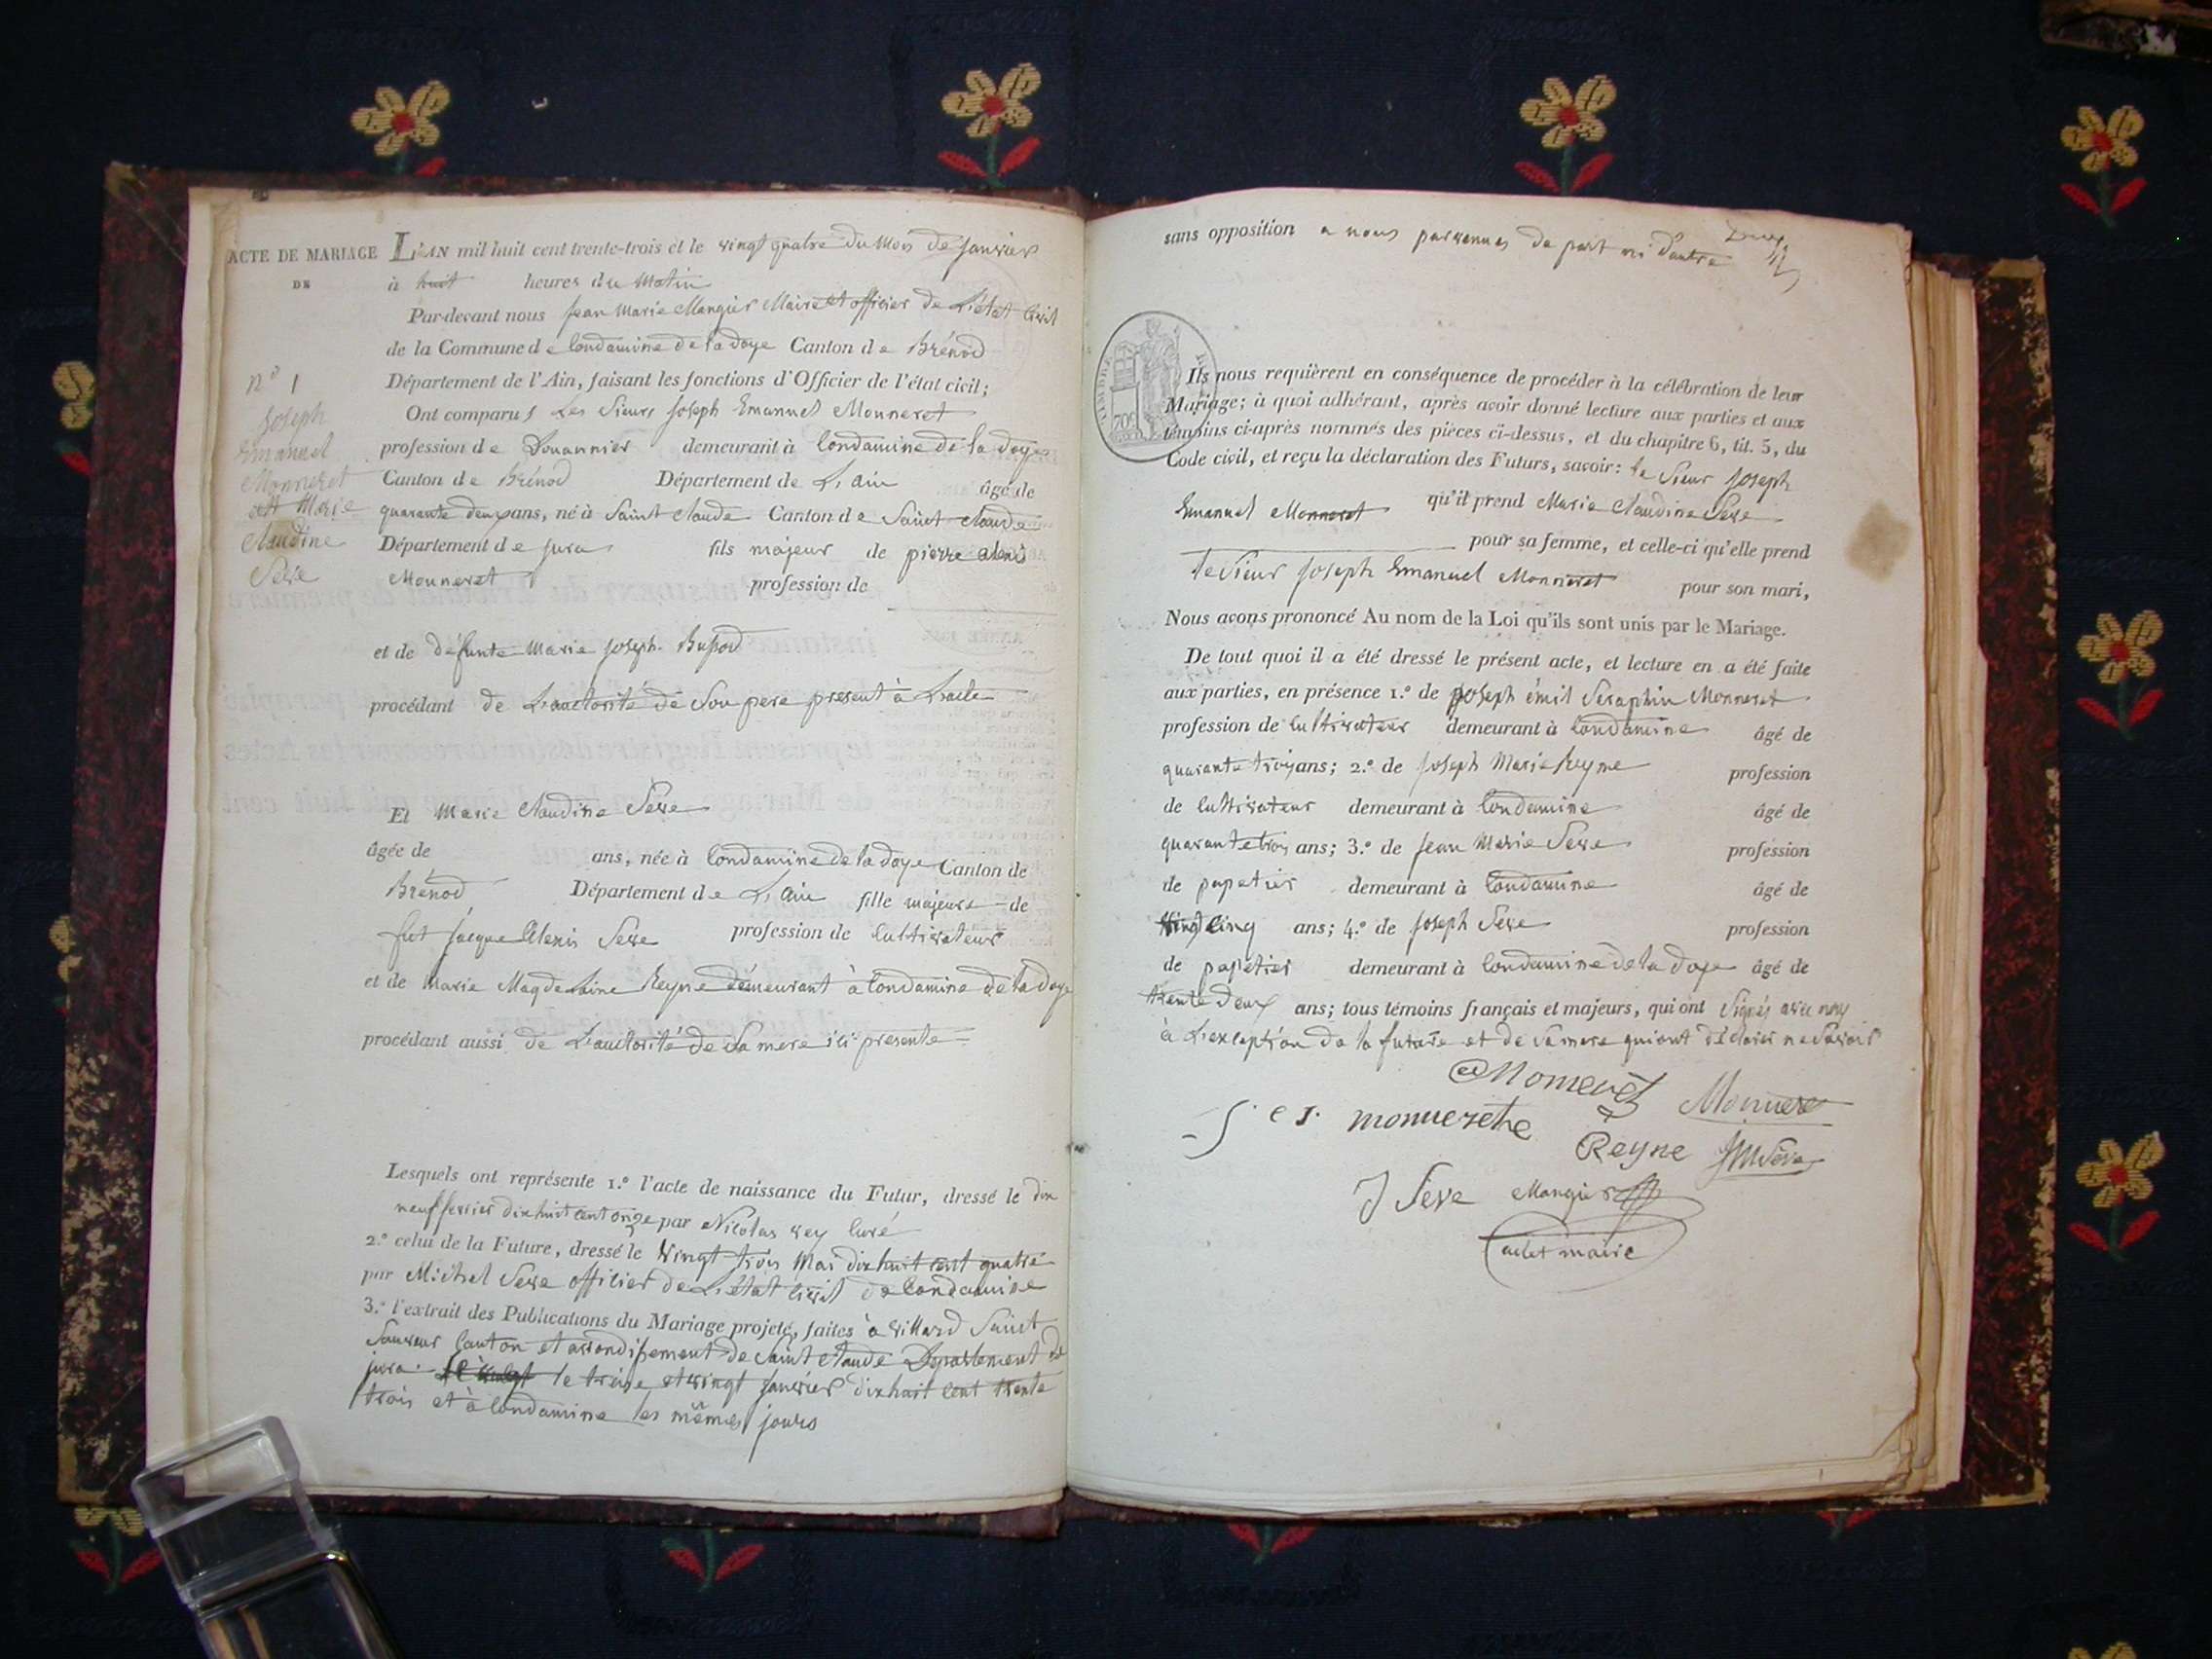 ACTE DE MARIAGE
DE
n.o 1
Joseph
Emanuel
Monneret
et Marie
Claudine
Seve
L'AN mil huit cent trente-trois et le vingt quatre du mois de janvier
à huit heures du matin
Par-devant nous Jean Marie Mangier Maire et officier de L'état civil
de la Commune de Condamine de la doye Canton de Brénod
Département de l'Ain, faisant les fonctions d'Officier de l'état civil;
Ont comparus Les Sieurs Joseph Emanuel Monneret
profession de Douannier demeurant à Condamine de la doye
Canton de Brénod Département de L'ain âgé de
quarante deux ans, né à Saint Claude Canton de Saint Claude
Département de jura fils majeur de pierre alexis
Monneret profession de
et de défunte Marie Joseph
procédant de L'auctorité de Son pere present à L'acte
Et Marie Claudine Seve
âgée de ans, née à Condamine de la doye Canton de
Brénod Département de L'ain fille majeure de
fut Jacque Alexis Seve profession de Cultivateur
et de Marie Magdelaine Reyne démeurant à Condamine de la doye
procédant aussi de L'auctorité de Sa mere ici presente
Lesquels ont représenté 1.º l'acte de naissance du Futur, dressé le dix
neuf fevrier dix huit cent onze par Nicolas rey Curé
2.º celui de la Future, dressé le vingt trois Mai dix huit cent quatre
par Michel Seve officier de L'état civil de Condamine
3.º l'extrait des Publications du Mariage projeté, faites à villard Saint
Sauveur Canton et arrondissement de Saint Claude Departement de
jura le treize et vingt janvier dix huit cent trente
trois et à Condamine les mêmes jours
sans opposition a nous parvenues de part ni d'autre
Ils nous requièrent en conséquence de procéder à la célébration de leur
Mariage; à quoi adhérant, après avoir donné lecture aux parties et aux
témoins ci-après nommés des pièces ci-dessus, et du chapitre 6, tit. 5, du
Code civil, et reçu la déclaration des Futurs, savoir: le Sieur Joseph
Emanuel Monneret qu'il prend Marie Claudine Seve
pour sa femme, et celle-ci qu'elle prend
le Sieur Joseph Emanuel Monneret pour son mari,
Nous avons prononcé Au nom de la Loi qu'ils sont unis par le Mariage.
De tout quoi il a été dressé le présent acte, et lecture en a été faite
aux parties, en présence 1.º de Joseph émil Seraphin Monneret
profession de Cultivateur demeurant à Condamine âgé de
quarante troy ans; 2.º de Joseph Marie Reyne profession
de Cultivateur demeurant à Condamine âgé de
quarante troy ans; 3.º de Jean Marie Seve profession
de papetier demeurant à Condamine âgé de
vingt cinq ans; 4.º de Joseph Seve profession
de papetier demeurant à Condamine de la doye âgé de
trente deux ans; tous témoins français et majeurs, qui ont Signés avec nous
à L'exception de la future et de Sa mere qui ont déclarer ne Savoir
Monneret
J. e S. monnerethe
Reyne JM Seve
J Seve Mangier
maire
TIMBRE
70c